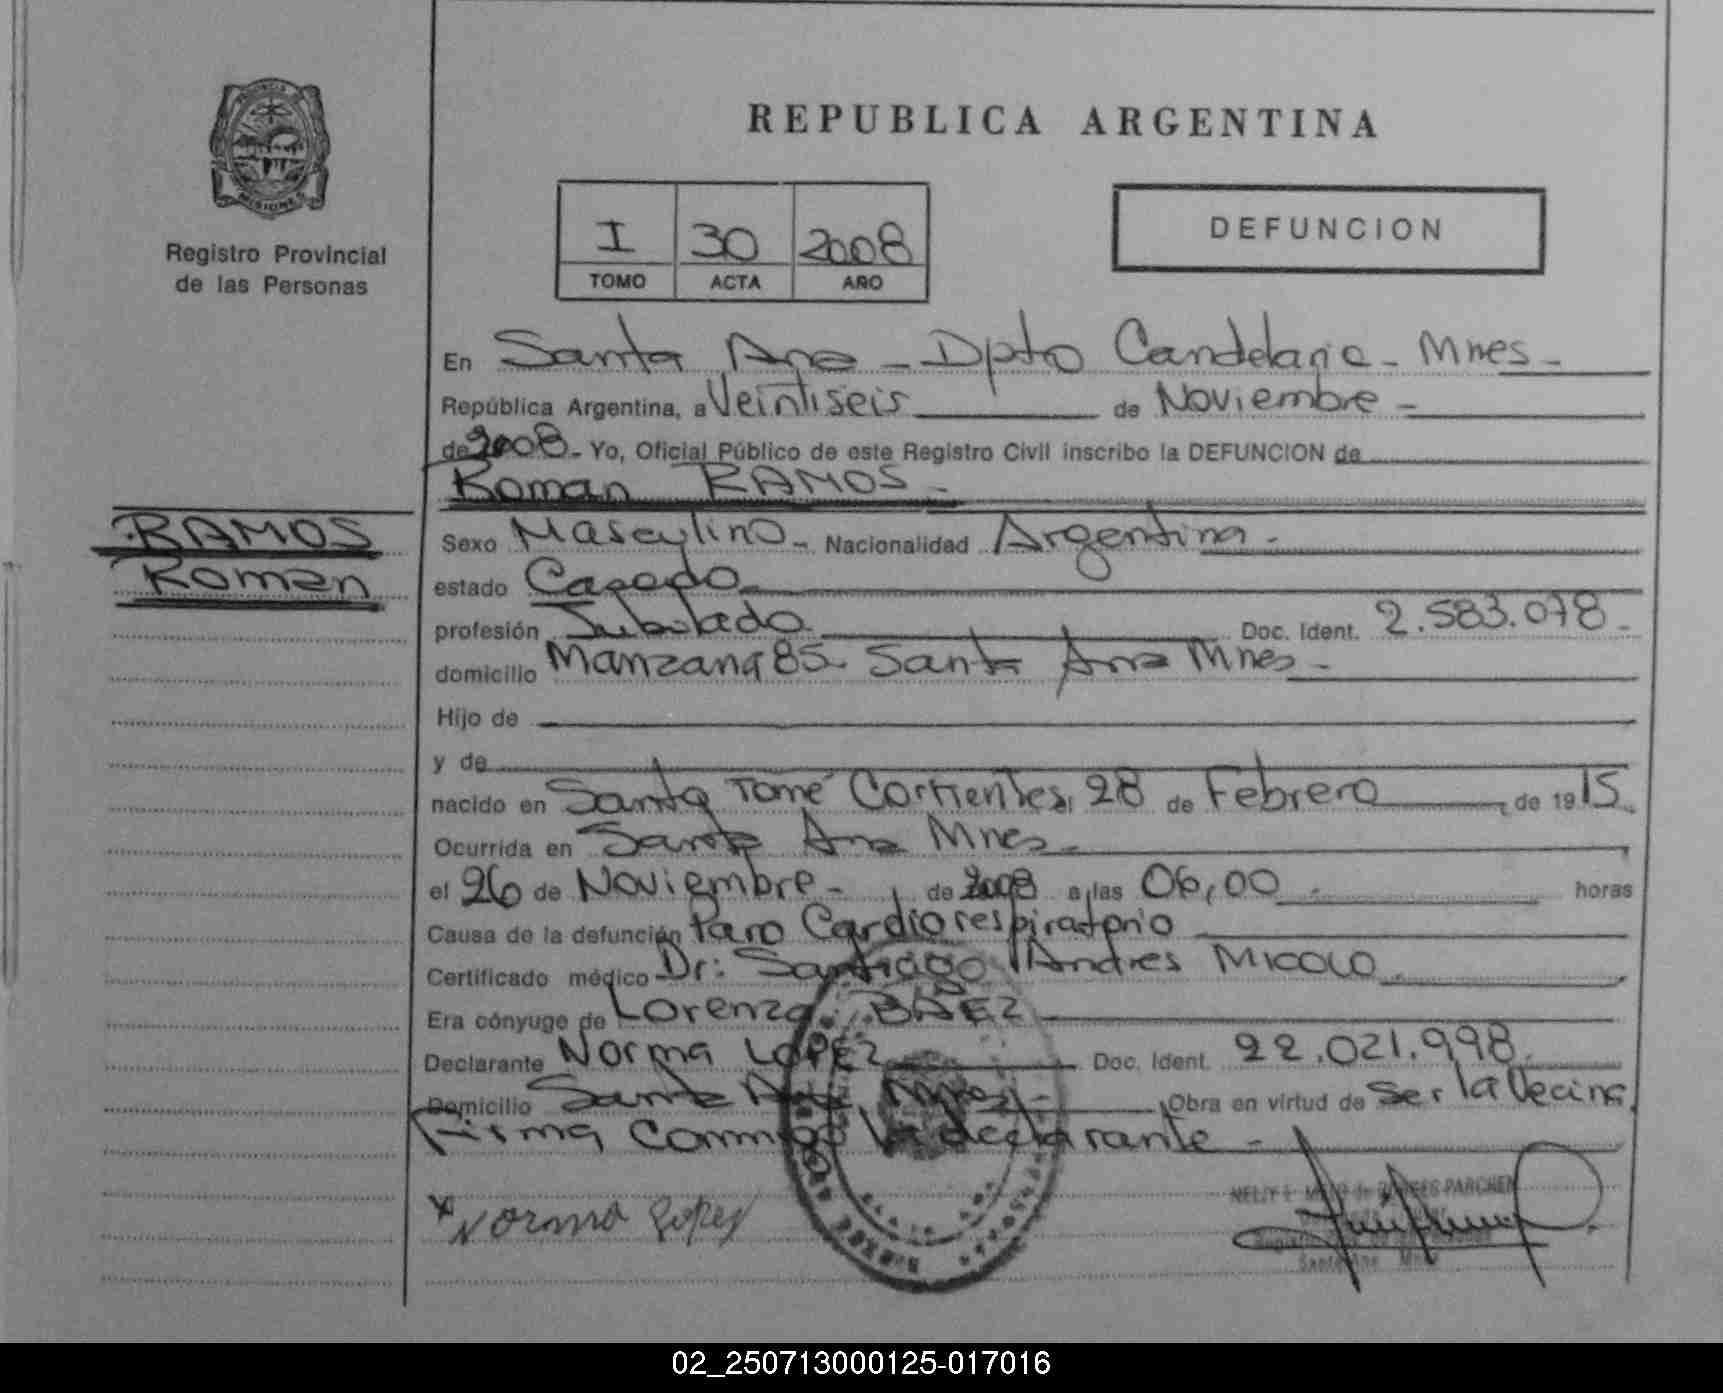 REPUBLICA ARGENTINA
Registro Provincial
de las Personas
I 30 2008
TOMO ACTA AÑO
DEFUNCION
En Santa Ana - Dpto Candelaria - Mnes -
República Argentina, a Veintiseis de Noviembre -
de 2008 - Yo, Oficial Público de este Registro Civil inscribo la DEFUNCION de
Roman RAMOS -
RAMOS
Roman
Sexo Masculino - Nacionalidad Argentina -
estado Casado
profesión Jubilado Doc. Ident. 2.583.078 -
domicilio Manzana 85 - Santa Ana Mnes -
Hijo de
y de
nacido en Santo Tomé Corrientes, 28 de Febrero de 1915
Ocurrida en Santa Ana Mnes -
el 26 de Noviembre - de 2008 a las 06,00 horas
Causa de la defunción Paro Cardiorespiratorio
Certificado médico Dr: Santiago Andres MICOLO
Era cónyuge de Lorenza BAEZ
Declarante Norma LOPEZ Doc. Ident. 22.021.998
Domicilio Santa Ana Mnes - Obra en virtud de Ser la Vecina
Firma Conmigo la declarante -
x Norma Lopez
Santa Ana
02_250713000125-017016